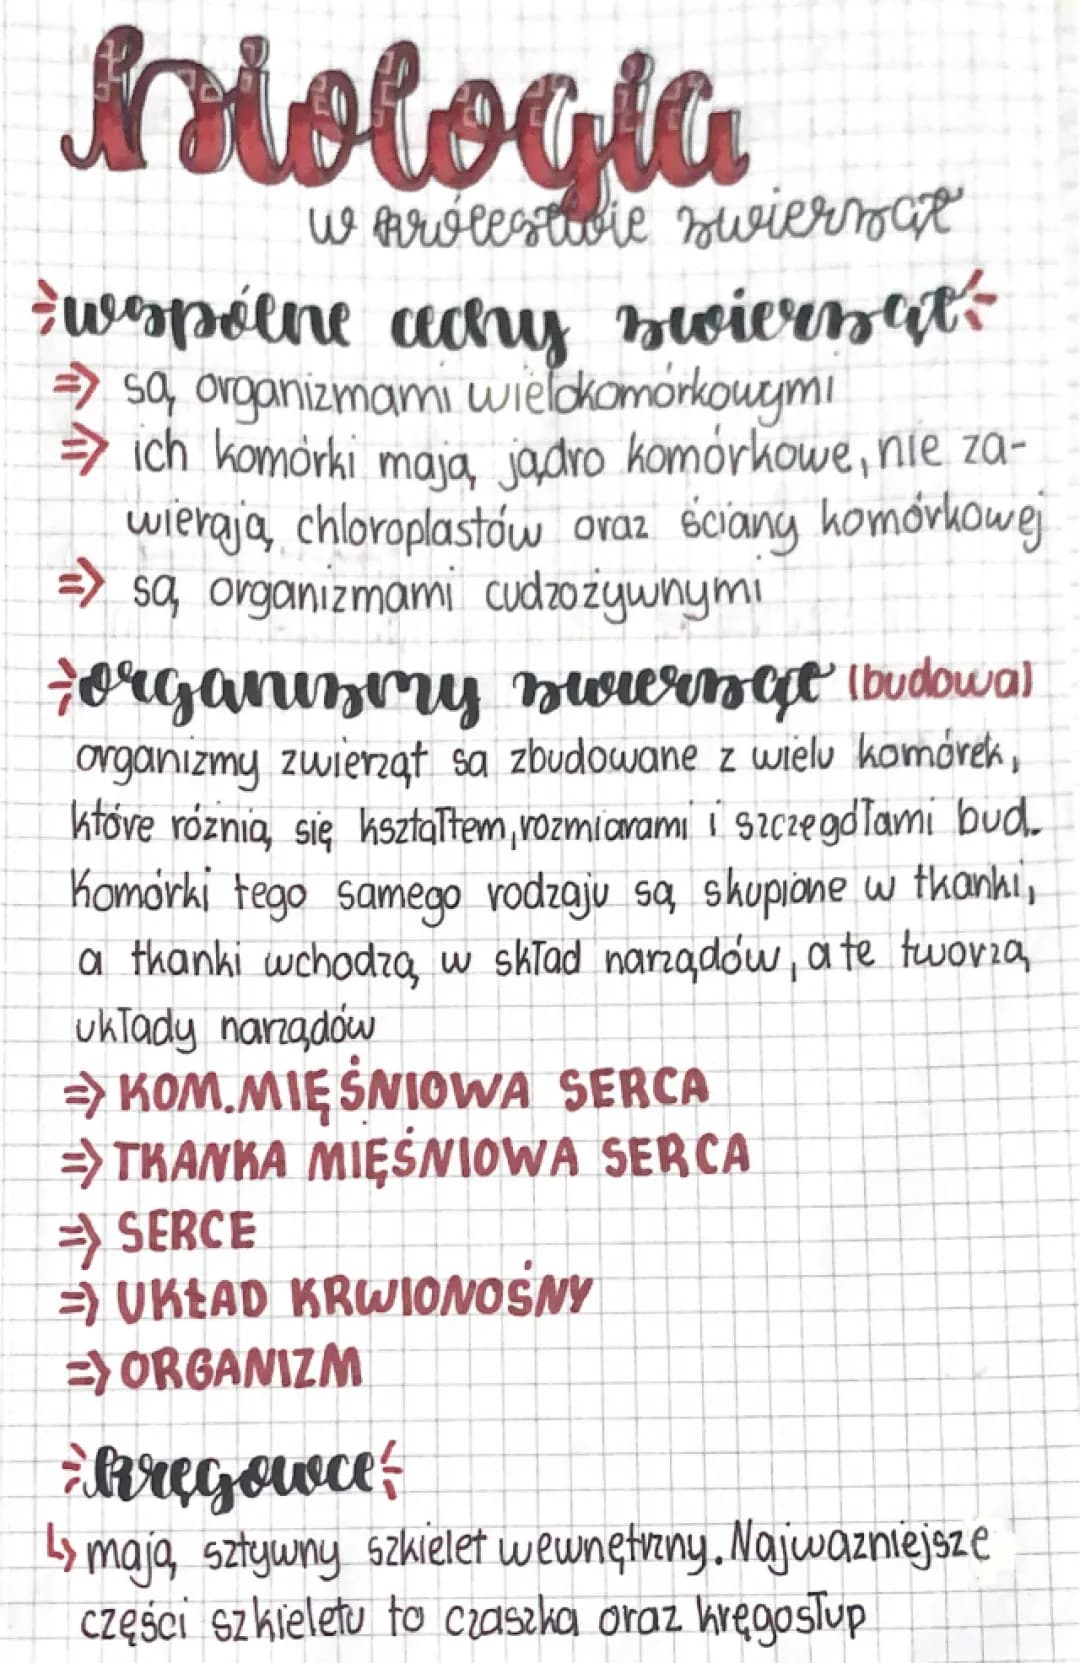 biologia
w królestwie zwierząt
wspólne cechy zwierząt
=> są organizmami wielokomórkowymi
=> ich komórki mają jądro komórkowe, nie za-
wierają chloroplastów oraz ściany komórkowej
=> są organizmami cudzożywnymi
organizmy zwierząt (budowa)
organizmy zwierząt sa zbudowane z wielu komórek,
które różnią się kształtem, rozmiarami i szczegółami bud.
Komórki tego samego rodzaju są skupione w tkanki,
a tkanki wchodzą w skład narządów, a te tworzą
układy narządów
=> KOM. MIĘŚNIOWA SERCA
=> TKANKA MIĘŚNIOWA SERCA
=> SERCE
=> UKŁAD KRWIONOŚNY
=> ORGANIZM
kręgowce
↳ mają sztywny szkielet wewnętrzny. Najwazniejsze
części szkieletu to czaszka oraz kręgosłup